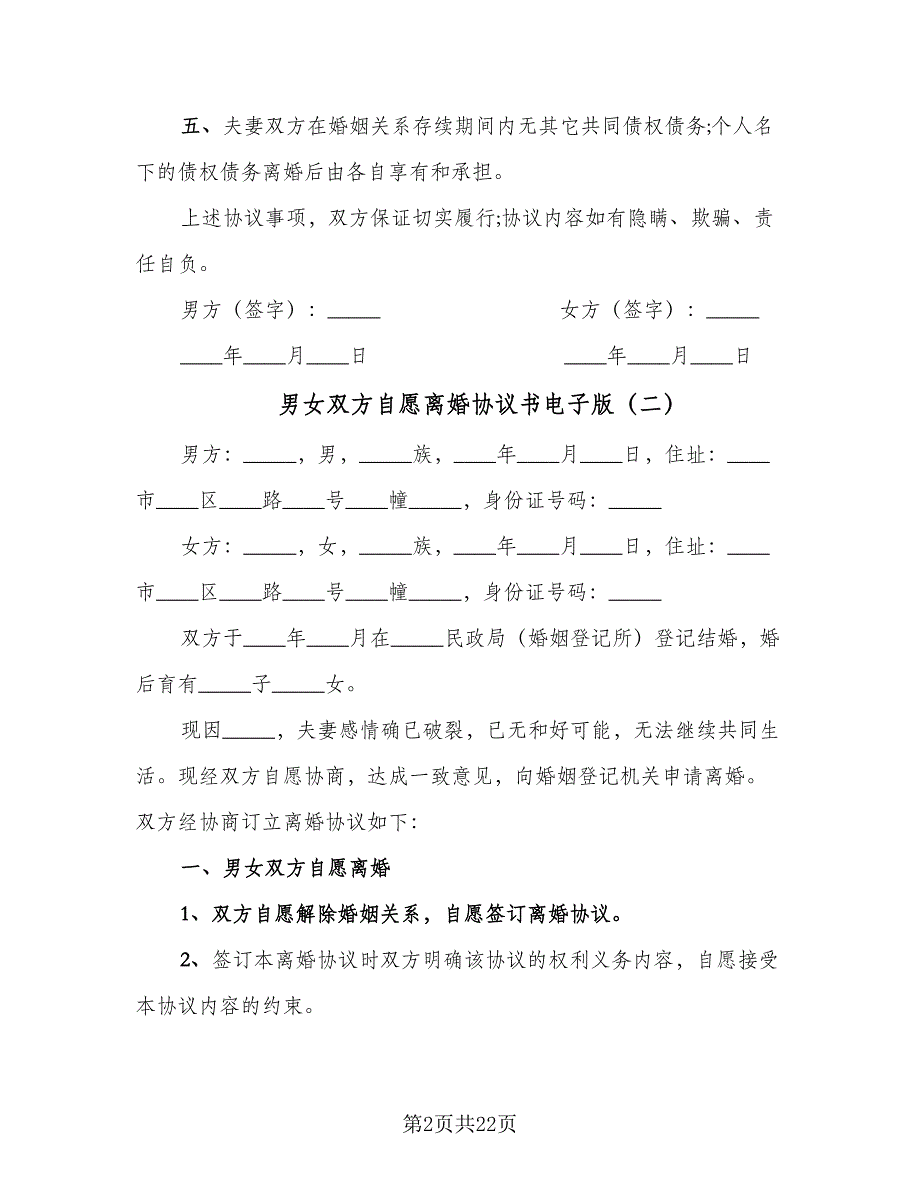 五、夫妻双方在婚姻关系存续期间内无其它共同债权债务;个人名
下的债权债务离婚后由各自享有和承担。
上述协议事项，双方保证切实履行;协议内容如有隐瞒、欺骗、责
任自负。
男方（签字）：_____ 女方（签字）：_____
____年____月____日 ____年____月____日
男女双方自愿离婚协议书电子版（二）
男方：_____，男，_____族，____年____月____日，住址：____
市____区____路____号____幢_____，身份证号码：_____
女方：_____，女，_____族，____年____月____日，住址：____
市____区____路____号____幢_____，身份证号码：_____
双方于____年____月在_____民政局（婚姻登记所）登记结婚，婚
后育有_____子_____女。
现因_____，夫妻感情确已破裂，已无和好可能，无法继续共同生
活。现经双方自愿协商，达成一致意见，向婚姻登记机关申请离婚。
双方经协商订立离婚协议如下：
一、男女双方自愿离婚
1、双方自愿解除婚姻关系，自愿签订离婚协议。
2、签订本离婚协议时双方明确该协议的权利义务内容，自愿接受
本协议内容的约束。
第2页共22页